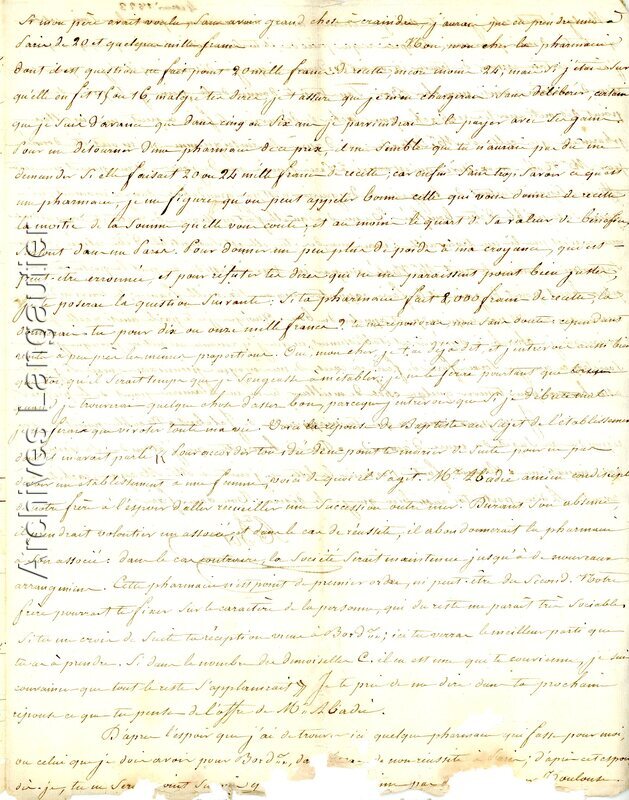 Si mon père avait voulu, sans avoir grand chose à craindre, j'aurais pu en prendre une à
Paris de 20 et quelques mille francs Non, mon cher la pharmacie
dont il est question ne fait point 20 mille francs de recette, encore moins 24, mais si j'étais sur
qu'elle en fit 15 ou 16, malgré ton dire, je t'assure que je m'en chargerais sans délibérer, certain
que je suis d'avance que dans cinq ou six ans je parviendrais à la payer avec ses gains
Pour me détourner d'une pharmacie de ce prix, il me semble que tu n'aurais pas dû me
demander si elle faisait 20 ou 24 mille francs de recette; car enfin sans trop savoir ce qu'est
une pharmacie, je me figure qu'on peut appeler bonne celle qui vous donne de recette
la moitié de la somme qu'elle vous coute, et au moins le quart de sa valeur de bénéfice
surtout dans un Paris. Pour donner un peu plus de poids à ma croyance, qui est
peut-être erronnée, et pour réfuter tes dires qui ne me paraissent point bien justes,
je poserai la question suivante: Si ta pharmacie fait 8,000 francs de recette, la
donnerais-tu pour dix ou onze mille francs? tu me répondras non sans doute: cependant
à peu près la même proportion. Oui, mon cher, je t'ai déjà dit, et j'entrevois aussi bien
que toi, qu'il serait temps que je songeasse à m'établir; je ne le ferai pourtant que
quand je trouverai quelque chose d'assez bon, parceque j'entrevois que si je débute mal
je ne ferai que vivoter toute ma vie. Voici la réponse de Baptiste au sujet de l'établissement
dont il m'avait parlé
avoir un établissement à une femme, voici de quoi il s'agit. Mr. Abadie ancien condisciple
de notre frère a l'espoir d'aller recueillir une succession outre mer. Durant son absence
il prendrait volontiers un associé, et dans le cas de réussite, il abandonnerait la pharmacie
à son associé: dans le cas contraire, la Société serait maintenue jusqu'à de nouveaux
arrangemens. Cette pharmacie n'est point de premier ordre, ni peut-être du second. Notre
frère pourrait te fixer sur le caractère de la personne, qui du reste me parait très sociable.
Si tu me crois de suite ta réception viens à Bordx; ici tu verras le meilleur parti que
tu as à prendre. Si dans le nombre des demoiselles C. il en est une qui te convienne, je suis
convaincu que tout le reste s'applanirait. Je te prie de me dire dans ta prochaine
réponse ce que tu penses de l'offre de Mr. Abadie.
D'après l'espoir que j'ai de trouver ici quelque pharmacie qui fasse pour moi,
ou celui que je dois avoir pour Bordx, de non réussite à Paris; d'après cet espoir
dis-je, tu ne seras point Toulouse
Archives Langaulier